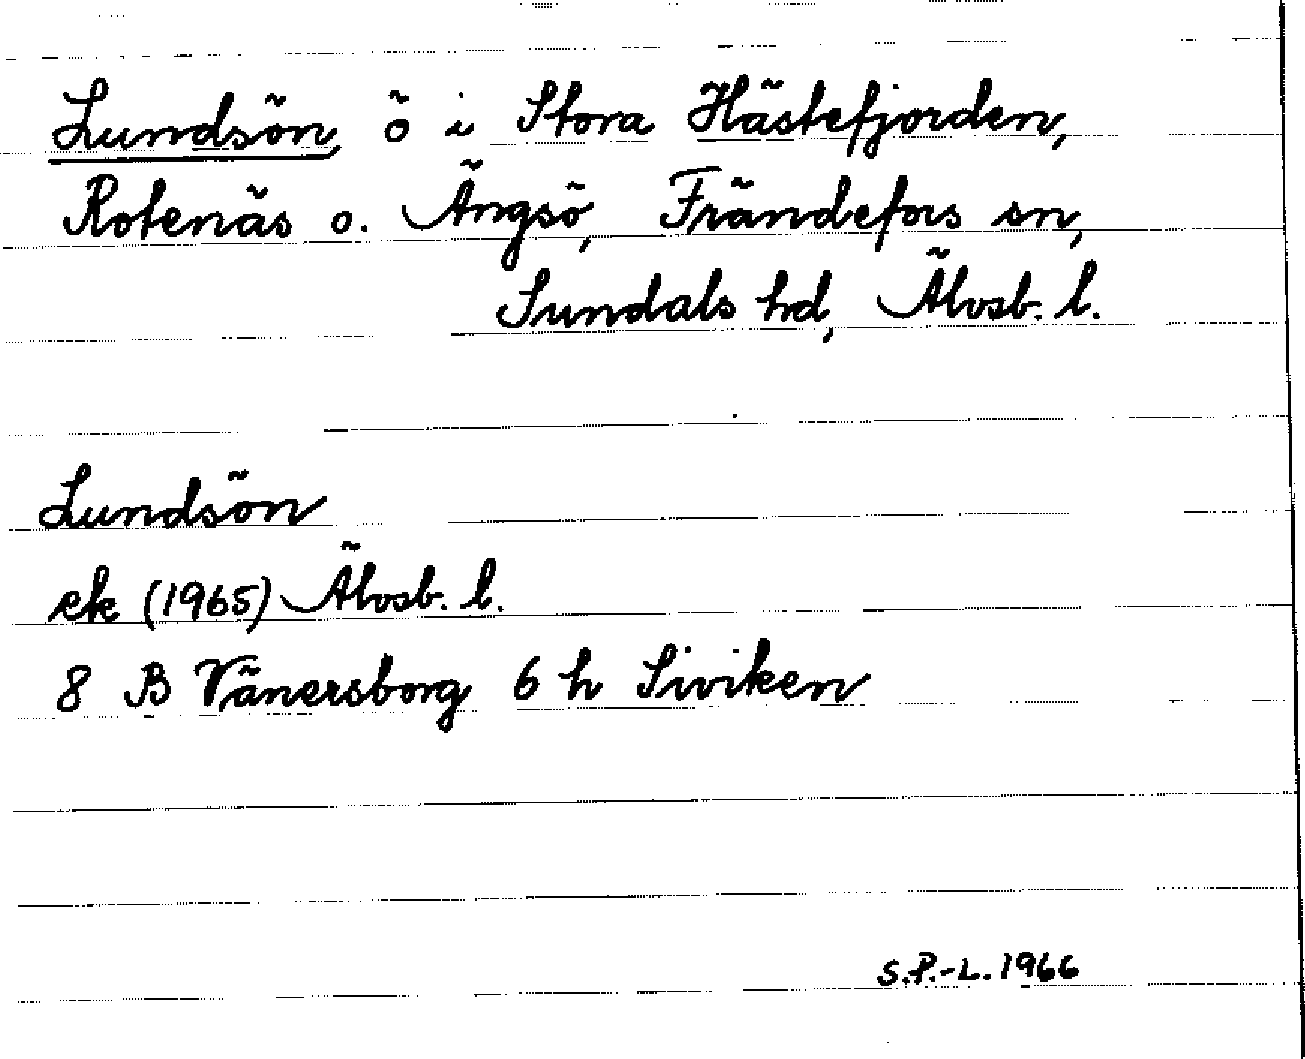 Lundsön, ö i Stora Hästefjorden,
Rotenäs o. Ängsö, Frändefors sn,
Sundals hd, Älvsb. l.
Lundsön
ek (1965) Älvsb. l.
8 B Vänersborg 6 h Siviken
S.P.-L. 1966